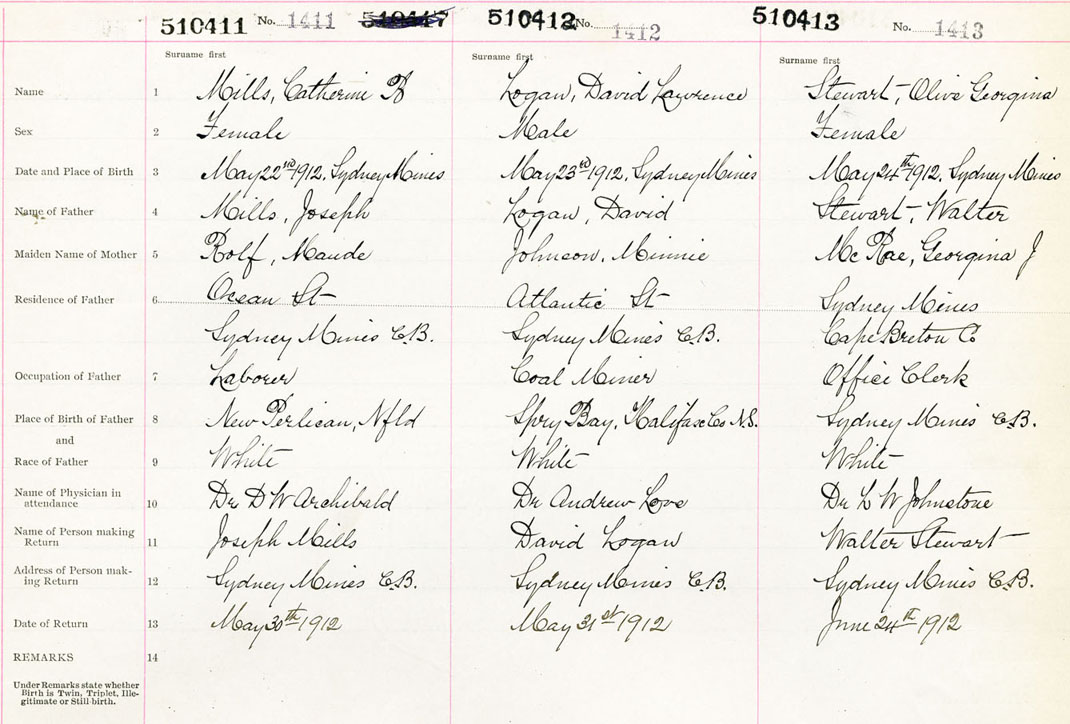 510411 No. 1411 510412 No. 1412 510413 No. 1413
Surname first Surname first Surname first
Name 1 Mills, Catherine R Logan, David Lawrence Stewart, Olive Georgina
Sex 2 Female Male Female
Date and Place of Birth 3 May 22nd 1912, Sydney Mines May 23rd 1912, Sydney Mines May 24th 1912, Sydney Mines
Name of Father 4 Mills, Joseph Logan, David Stewart, Walter
Maiden Name of Mother 5 Rolf, Maude Johnson, Minnie Mc Rae, Georgina J
Residence of Father 6 Ocean St Atlantic St Sydney Mines
Sydney Mines C.B. Sydney Mines C.B. Cape Breton Co
Occupation of Father 7 Laborer Coal Miner Office Clerk
Place of Birth of Father 8 New Perlican, Nfld Spry Bay, Halifax Co N.S. Sydney Mines C.B.
and
Race of Father 9 White White White
Name of Physician in
attendance 10 Dr D W Archibald Dr Andrew Love Dr L W Johnstone
Name of Person making
Return 11 Joseph Mills David Logan Walter Stewart
Address of Person mak-
ing Return 12 Sydney Mines C.B. Sydney Mines C.B. Sydney Mines C.B.
Date of Return 13 May 30th 1912 May 31st 1912 June 24th 1912
REMARKS 14
Under Remarks state whether
Birth is Twin, Triplet, Ille-
gitimate or Still-birth.